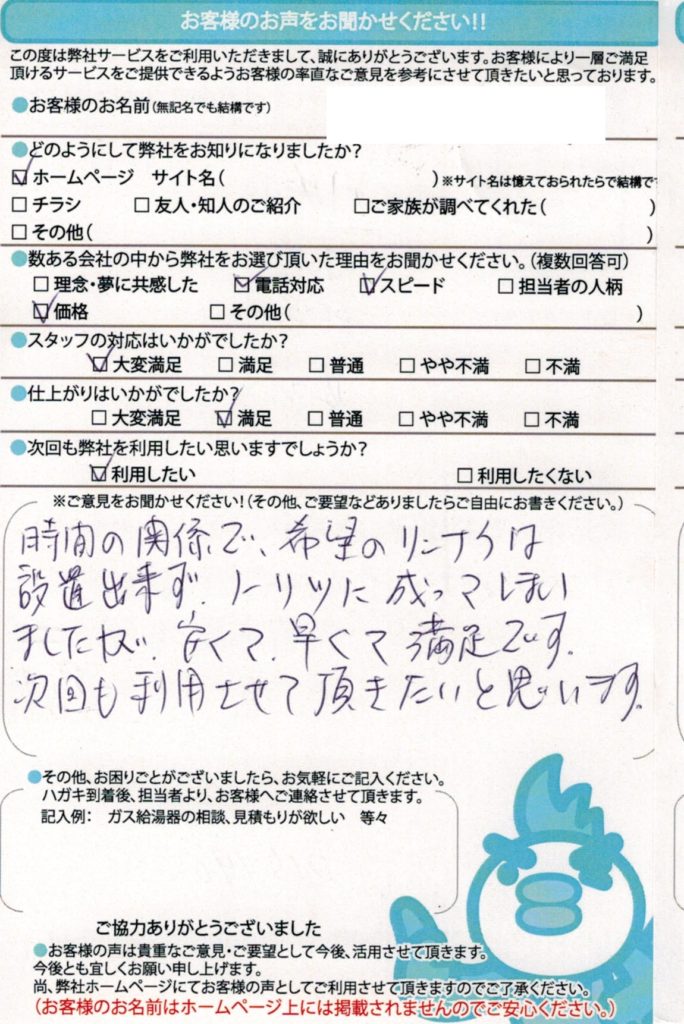 お客様のお声をお聞かせください!!
この度は弊社サービスをご利用いただきまして、誠にありがとうございます。お客様により一層ご満足
頂けるサービスをご提供できるようお客様の率直なご意見を参考にさせて頂きたいと思っております。
●お客様のお名前(無記名でも結構です)
●どのようにして弊社をお知りになりましたか?
☑ホームページ サイト名( )※サイト名は憶えておられたらで結構です
□チラシ □友人・知人のご紹介 □ご家族が調べてくれた( )
□その他( )
●数ある会社の中から弊社をお選び頂いた理由をお聞かせください。(複数回答可)
□理念・夢に共感した ☑電話対応 ☑スピード □担当者の人柄
☑価格 □その他( )
●スタッフの対応はいかがでしたか?
☑大変満足 □満足 □普通 □やや不満 □不満
●仕上がりはいかがでしたか?
□大変満足 ☑満足 □普通 □やや不満 □不満
●次回も弊社を利用したい思いますでしょうか?
☑利用したい □利用したくない
※ご意見をお聞かせください!(その他、ご要望などありましたらご自由にお書きください。)
時間の関係で、希望のリンナイは
設置出来ず、ノーリツに成ってしまい
ましたが、安くて、早くて満足です。
次回も利用させて頂きたいと思います。
●その他、お困りごとがございましたら、お気軽にご記入ください。
ハガキ到着後、担当者より、お客様へご連絡させて頂きます。
記入例: ガス給湯器の相談、見積もりが欲しい 等々
ご協力ありがとうございました
●お客様の声は貴重なご意見・ご要望として今後、活用させて頂きます。
今後とも宜しくお願い申し上げます。
尚、弊社ホームページにてお客様の声としてご利用させて頂きますのでご了承ください。
(お客様のお名前はホームページ上には掲載されませんのでご安心ください。)